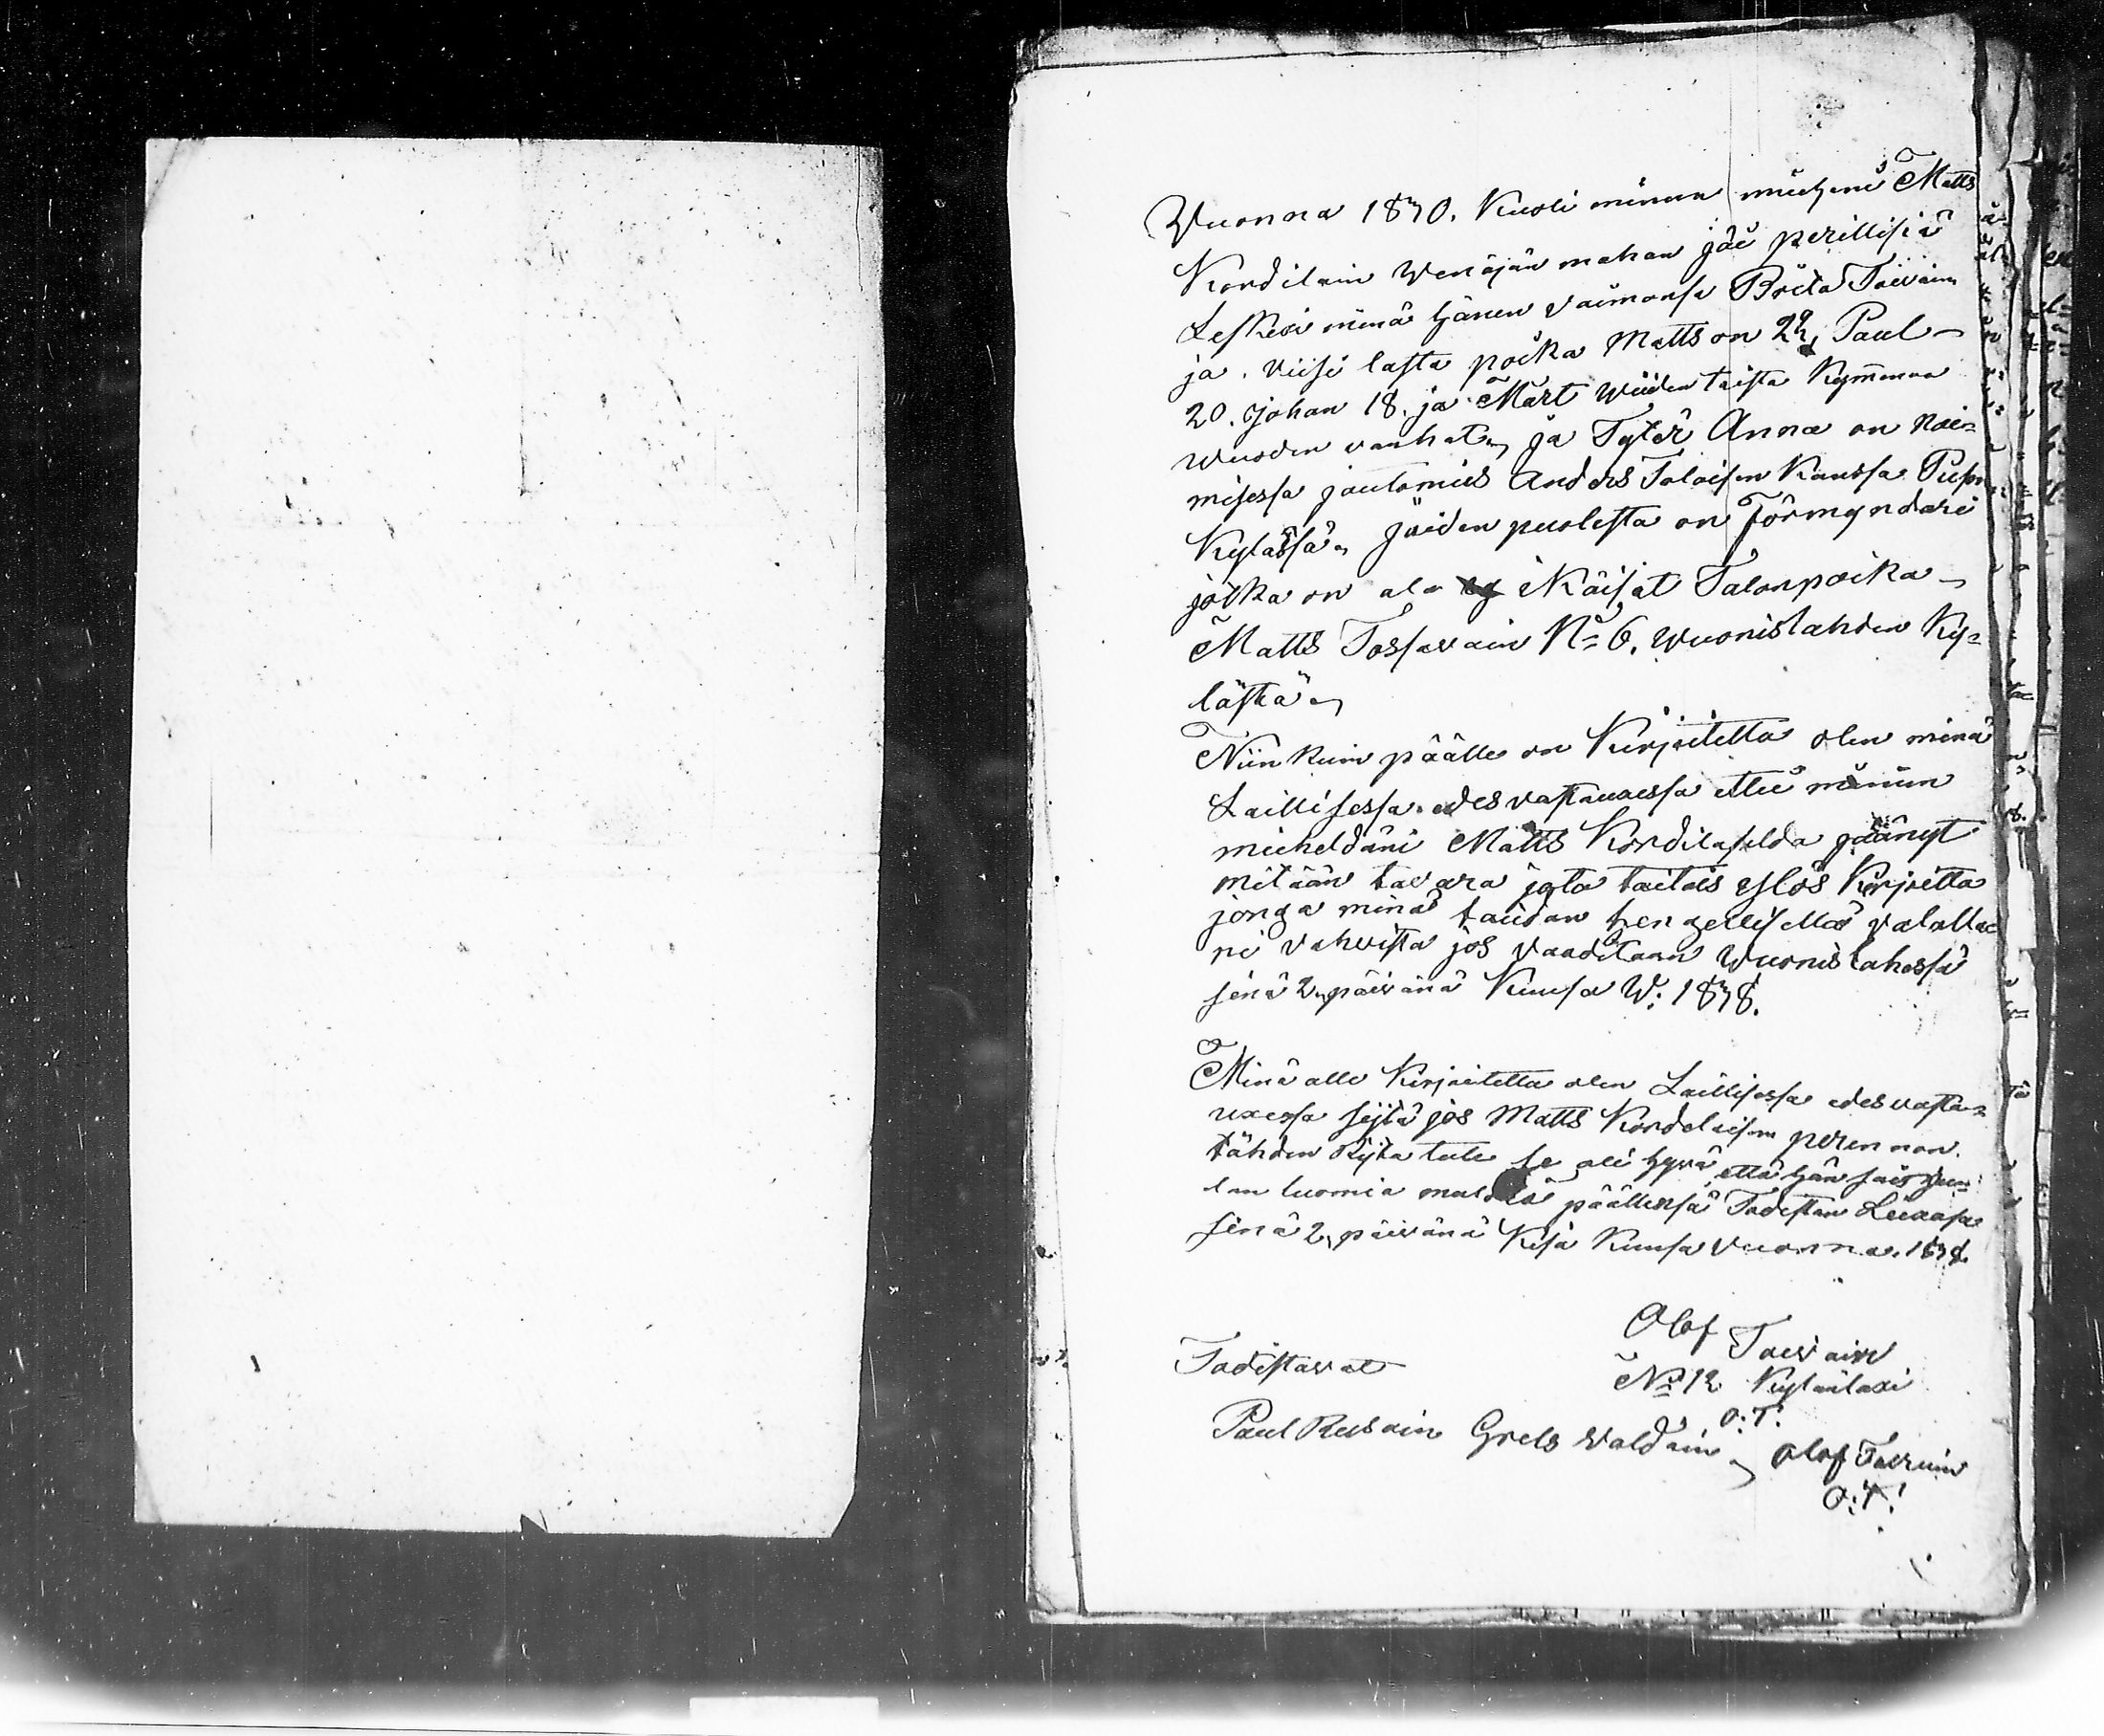 Wuonna 1870. Kuoli minun mieheni Matts
Kordilain Wenäjän mahan jäi perillisiä
Leskexi minä hänen vaimonsa Brita Toivain
ja viisi lasta poika Matts on 22, Paul
20. Johan 18. ja Mårt Wiiden taista Kymmenen
wuoden vanhat, ja Tytär Anna on nai=
misessa joutomies Anders Toloisen Kanssa
Kylässä, Joiden puolesta on Förmyndäri
jotka on ala iKäisät Talonpoika
Matts Tossavain No 6. Wuonislahden Ky=
lästä,
Niin kuin päälle on Kirjoitettu olen minä
Laillisessa edesvastauxessa ettei minun
mieheldäni Matts Kordilaselda jäänyt
mitään tavara jota taitais ylös Kirjoitta
jonga minä taidan hengellisellä valalla
ni vahvista jos vaaditaan Wuonislahessa
senä 2, päivänä Kuusa W: 1878.
Minä alle Kirjoitettu olen Laillisessa edesvasta=
uxessa siitä jos Matts Kordelaisen perunnan
tähden Kysta tule se oli hyvä että hän sais
lan luomia multia päällensä Todistan Liexasa
senä 2, päivänä Kesä Kuusa Vuonna. 1878.
Olof Toivain
No 12 Kylänlaxi
O: T:
Todistavat
Paul Rusain Grels Valdain, Olof Toivain
O: T: